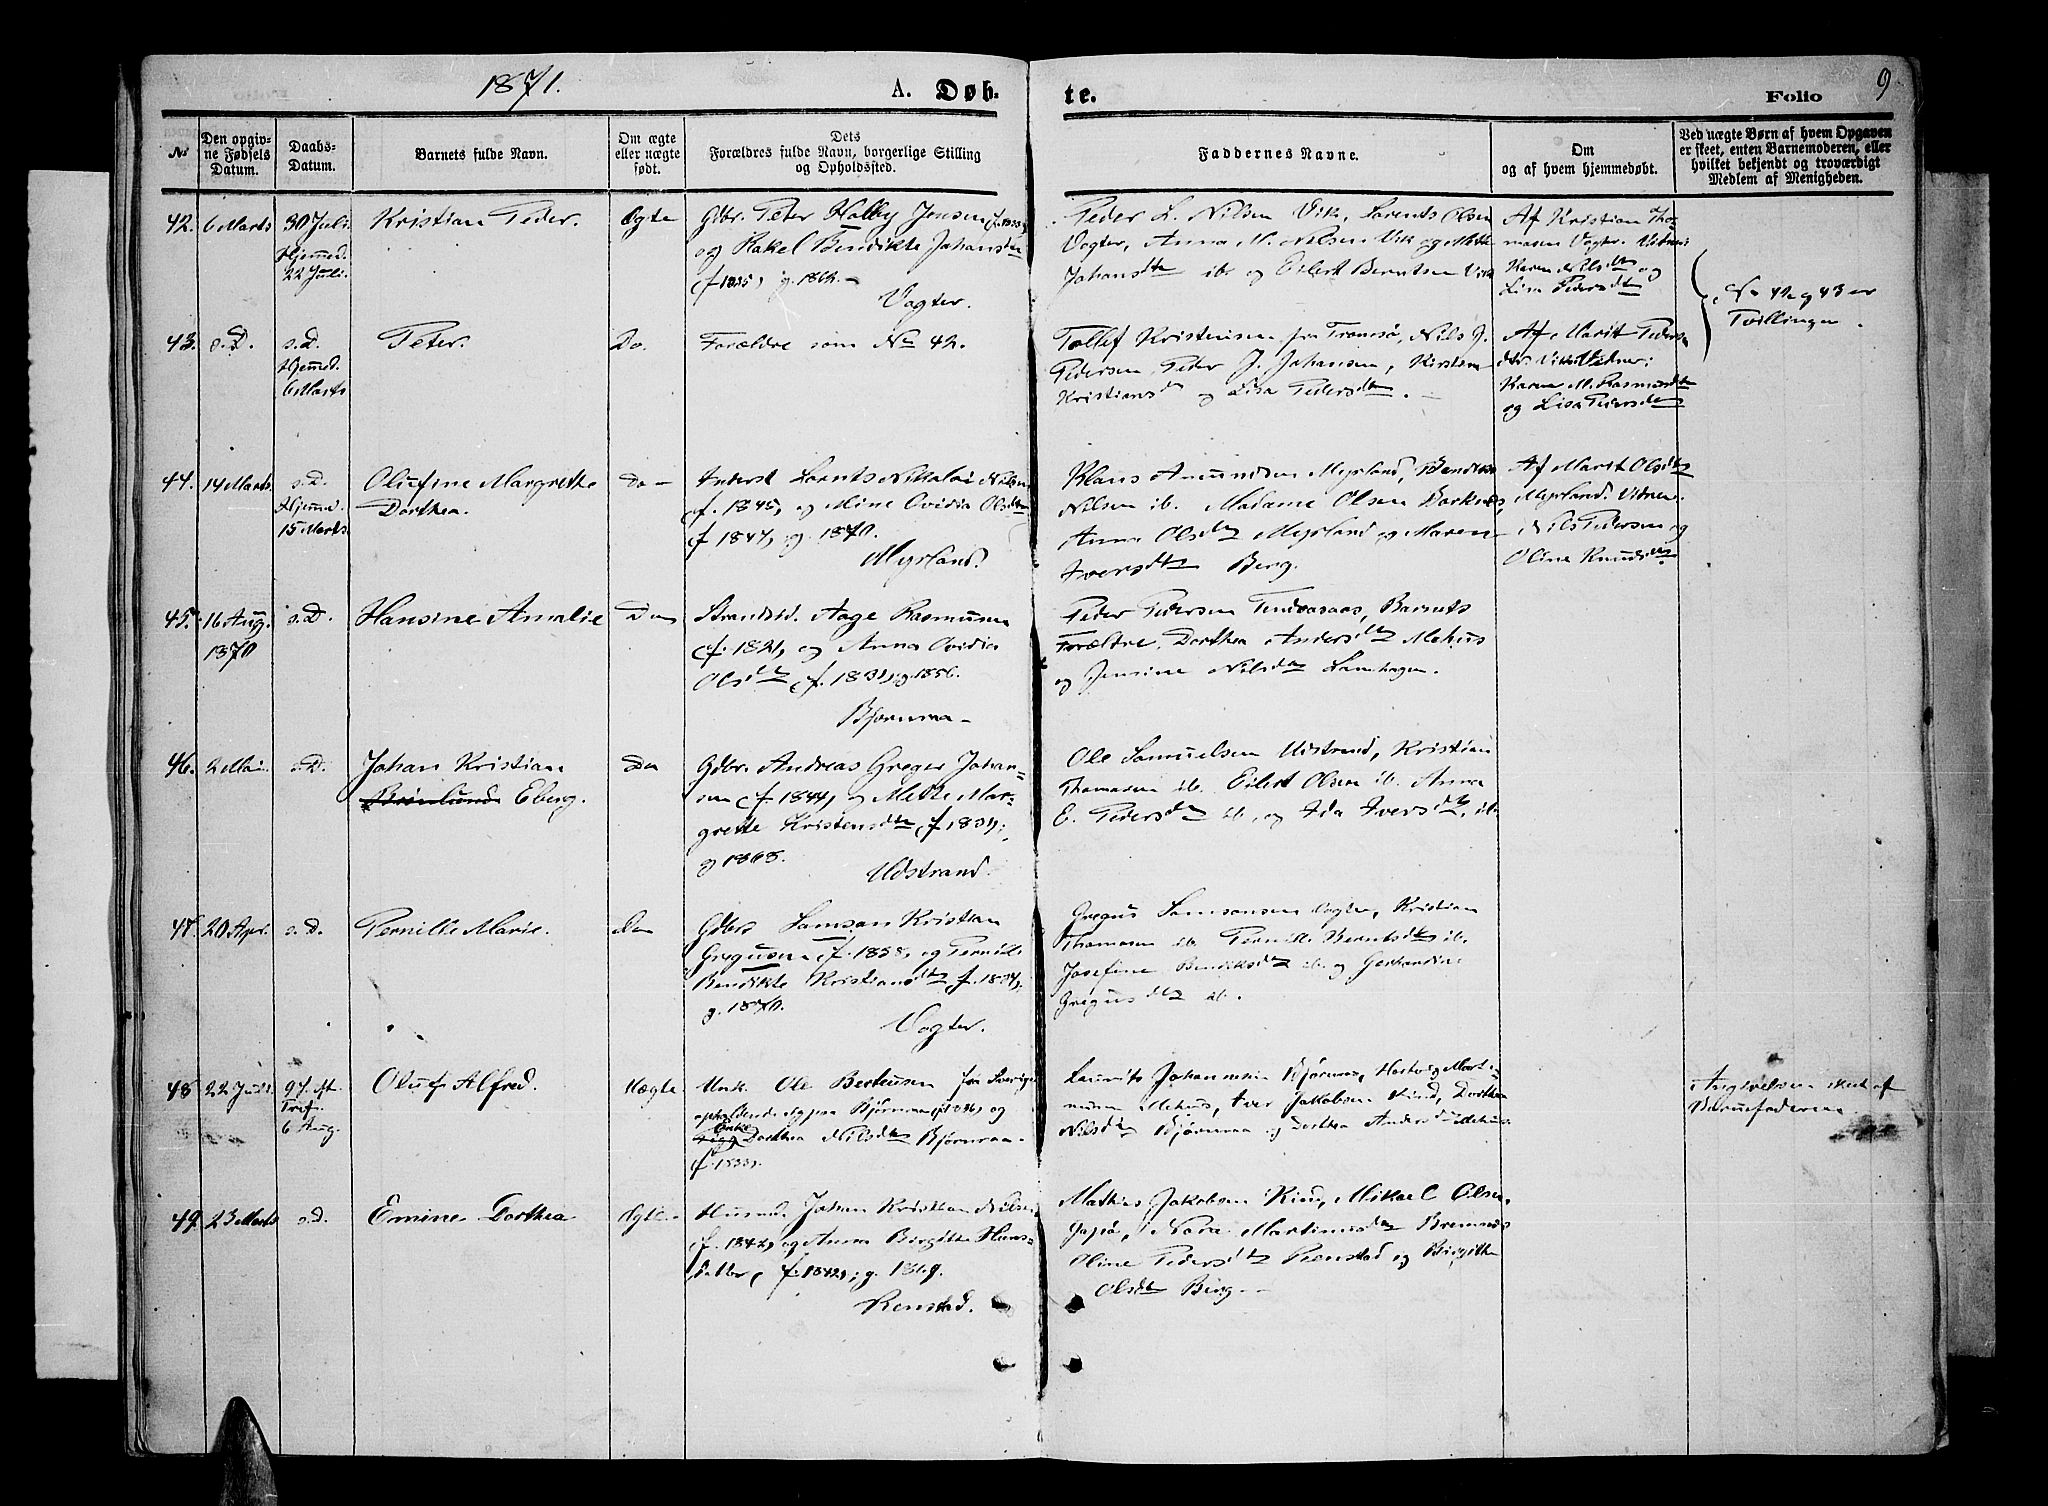 1871.
A. Døb-
te.
Folio 9
No
Den opgiv-
ne Fødsels
Datum.
Daabs-
Datum.
Barnets fulde Navn.
Om ægte
eller uægte
født.
Dets
Forældres fulde Navn, borgerlige Stilling
og Opholdssted.
Faddernes Navne.
Om
og af hvem hjemmedøbt.
Ved uægte Børn af hvem Opgaven
er skeet, enten Barnemoderen, eller
hvilket bekjendt og troværdigt
Medlem af Menigheden.
42. 6 Marts
30 Juli.
Hjemmed.
22 Juli.
Kristian Peder.
Ægte
Gbr. Peter Holby Jensen
og Rakel Bendikte Johansdtr
(f 1835, g. 1862.
Vogter.
Peder L. Nilsen Vik, Lorents Olsen
Vogter, Anna M. Nilsen Vik og Mette
Johansdtr ib. og Eilert Berntsen Vik
Af Kristian Tho-
masen Vogter. Vidner:
Karen Nilsdtr og
Lisa Pedersdtr
No 42 og 43 er
Tvillinger.
43. s.D.
s.D.
Hjemmed.
6 Marts
Peter.
Do.
Forældre som No 42.
Tollef Kristensen fra Tromsø, Nils J.
Pedersen, Peder J. Johansen, Kirsten
Kristiansd og Lisa Pedersdtr.
Af Marit Peders-
dtr Vik. Vidner:
Karen M. Rasmusdtr
og Lisa Pedersdtr
44. 14 Marts.
s.D.
Hjemmed.
15 Marts.
Olufine Margrethe
Dorthea.
Do
Inderst Lorents Nikkolai Nilsen
(f. 1845, og Mine Ovidia Olsdtr
(f 1847, g. 1870.
Myrland.
Klaus Amundsen Myrland,
Nilsen ib. Madame Olsen
Anna Olsdtr Myrland og Maren
Iversdtr Berg.
Af Marit Olsdtr
Myrland. Vidner:
Nils Pedersen og
Oline Knudsdtr
45. 16 Aug.
1870
s.D.
Hansine Amalie
Do
Strandsd. Aage Rasmusen
(f. 1821, og Anna Ovidia
Olsdtr (f. 1832, g. 1856.
Bjørnraa
Peder Pedersen Barnets
Forældre, Dorthea Andersdtr Mehus
og Jensine Nilsdtr
46. 2 Mai.
s.D.
Johan Kristian
Eberg.
Do
Gdbr. Andreas Greger Johan-
sen (f 1844, og Mette Mar-
grethe Kristensdtr (f 1839;
g 1868.
Udstrand.
Ole Samuelsen Udstrand, Kristian
Thomasen ib. Eilert Olsen ib. Anna
E. Pedersdtr ib. og Ida Iversdtr, ib.
47. 20 Apr.
s.D.
Pernille Marie.
Do
Gdbr Samson Kristian
Gregusen (f. 1838, og Pernille
Bendikte Kristiansdtr f. 1834;
g. 1870.
Vogter.
Gregus Samsonsen Vogter, Kristian
Thomasen ib. Pernille Berntsdtr ib.
Josefine Bendiksdtr ib. og
Gregusdtr ib.
48 22 Juli.
Tref.
6 Aug.
Oluf Alfred.
Uægte
Unk. Ole Berteusen fra Sverige
Enke
Dorthea Nilsdtr Bjørnraa
f 1833.
Laurits Johannesen Bjørnraa, Hartvig Mart-
Mehus, Iver Jakobsen Kind, Dorthea
Nilsdtr Bjørnraa og Dorthea Andersdtr Mehus
Angivelsen skeet af
Barnefaderen
49. 23 Marts
s.D.
Emine Dorthea
Ægte.
Husmd. Johan Kristian Nilsen
(f. 1842, og Anna Birgitte Hans-
datter, f. 1842; g. 1869.
Renstad.
Mathias Jakobsen Kind, Mikael Olsen
Oline Pedersdtr Renstad og Birgitte
Olsdtr Berg